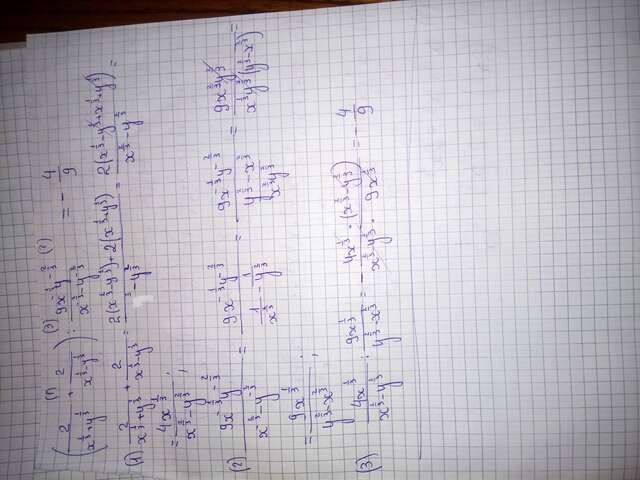 (1) (3) (2)
(2/(x^(1/3)+y^(1/3)) + 2/(x^(1/3)-y^(1/3))) : (9x^(-1/3)y^(-2/3))/(x^(-2/3)-y^(-2/3)) = -4/9
(1) 2/(x^(1/3)+y^(1/3)) + 2/(x^(1/3)-y^(1/3)) = (2(x^(1/3)-y^(1/3))+2(x^(1/3)+y^(1/3)))/(x^(2/3)-y^(2/3)) = (2(x^(1/3)-y^(1/3)+x^(1/3)+y^(1/3)))/(x^(2/3)-y^(2/3)) =
= (4x^(1/3))/(x^(2/3)-y^(2/3)) ;
(2) (9x^(-1/3)y^(-2/3))/(x^(-2/3)-y^(-2/3)) = (9x^(-1/3)y^(-2/3))/(1/x^(2/3) - 1/y^(2/3)) = (9x^(-1/3)y^(-2/3))/((y^(2/3)-x^(2/3))/(x^(2/3)y^(2/3))) = (9x^(2/3)y^(2/3))/(x^(1/3)y^(2/3)(y^(2/3)-x^(2/3))) =
= (9x^(1/3))/(y^(2/3)-x^(2/3)) ;
(3) (4x^(1/3))/(x^(2/3)-y^(2/3)) : (9x^(1/3))/(y^(2/3)-x^(2/3)) = - (4x^(1/3) · (x^(2/3)-y^(2/3)))/(x^(2/3)-y^(2/3) · 9x^(1/3)) = -4/9